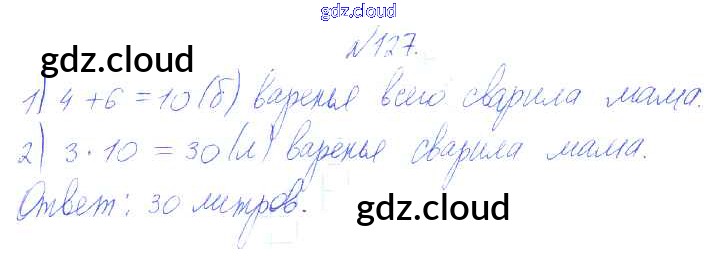 gdz.cloud
№127.
gdz.cloud
1) 4 + 6 = 10 (б) варенья всего сварила мама.
2) 3 · 10 = 30 (л) варенья сварила мама.
Ответ: 30 литров.
gdz.cloud